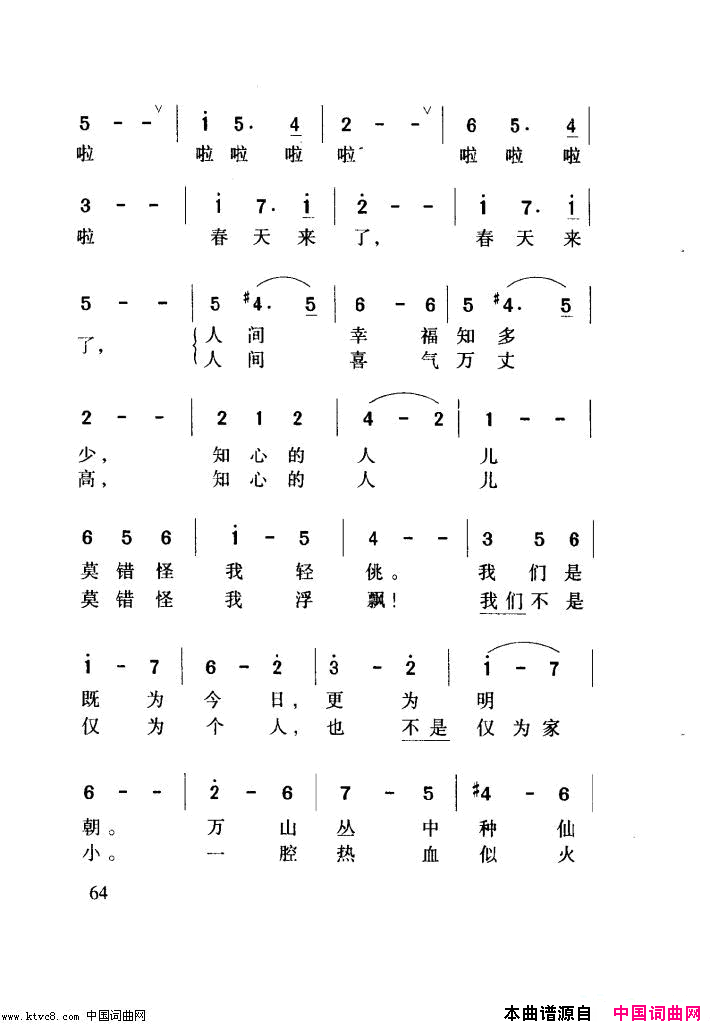 5 - - ∨ | i 5. 4 | 2 - - ∨ | 6 5. 4 |
啦 啦 啦 啦 啦 啦 啦 啦
3 - - | i 7. i | 2 - - | i 7. i |
啦 春 天 来 了, 春 天 来
5 - - | 5 #4. 5 | 6 - 6 | 5 #4. 5 |
了, 人 间 幸 福 知 多
人 间 喜 气 万 丈
2 - - | 2 1 2 | 4 - 2 | 1 - - |
少, 知 心 的 人 儿
高, 知 心 的 人 儿
6 5 6 | i - 5 | 4 - - | 3 5 6 |
莫 错 怪 我 轻 佻。 我 们 是
莫 错 怪 我 浮 飘! 我们 不 是
i - 7 | 6 - 2 | 3 - 2 | i - 7 |
既 为 今 日, 更 为 明
仅 为 个 人, 也 不是 仅 为 家
6 - - | 2 - 6 | 7 - 5 | #4 - 6 |
朝。 万 山 丛 中 种 仙
小。 一 腔 热 血 似 火
64
www.ktvc8.com 中国词曲网
本曲谱源自 中国词曲网